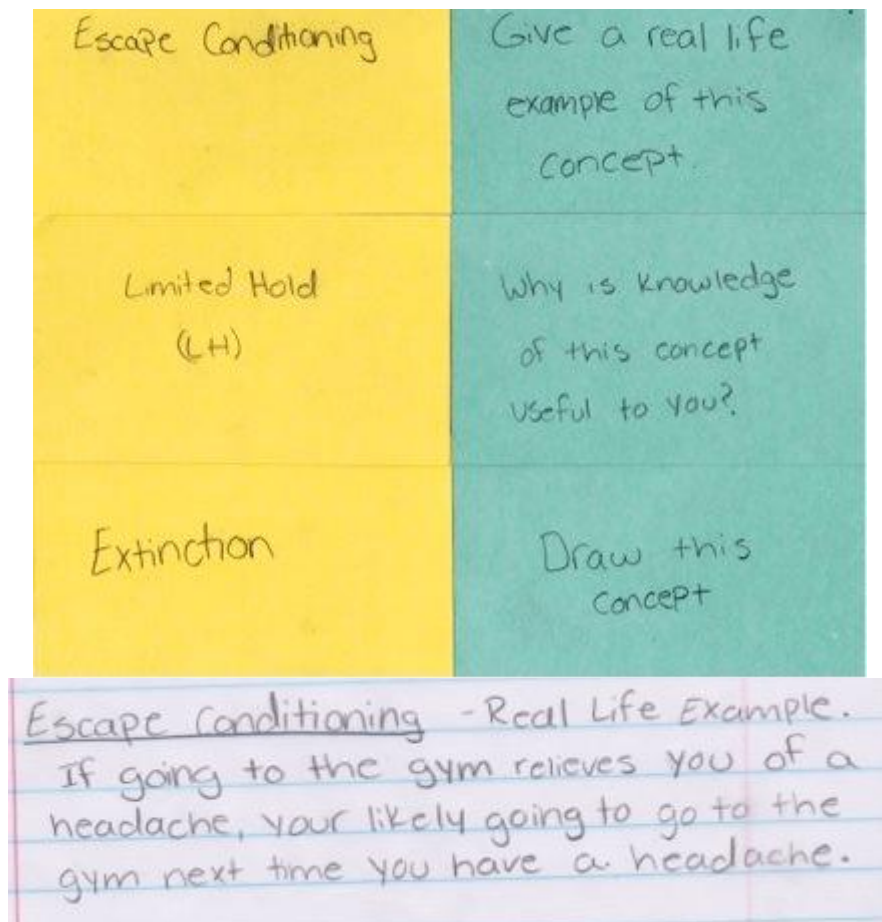 Escape Conditioning
Give a real life
example of this
concept.
Limited Hold
(LH)
Why is knowledge
of this concept
useful to you?
Extinction
Draw this
concept
Escape Conditioning - Real Life Example.
If going to the gym relieves you of a
headache, your likely going to go to the
gym next time you have a headache.